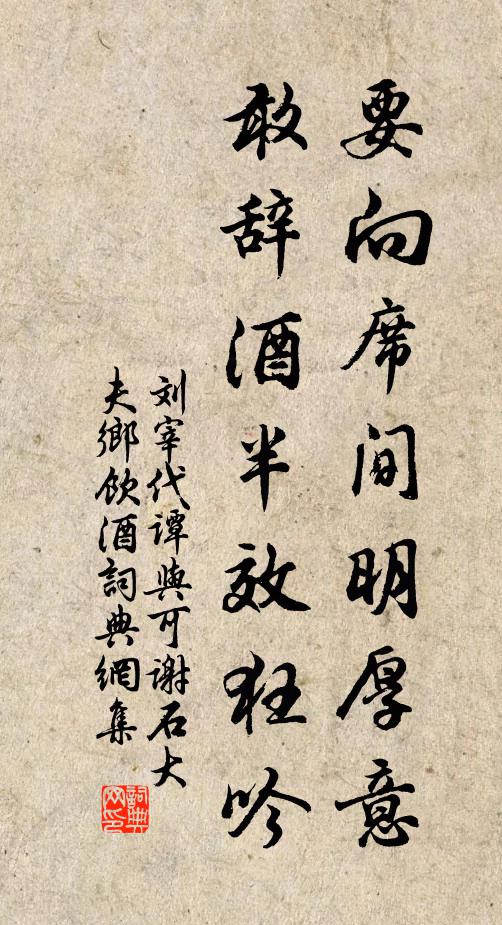 要向席间明厚意
敢辞酒半效狂吟
刘宰代谭与可谢石大
夫鄉饮酒詞典網集
詞典网印